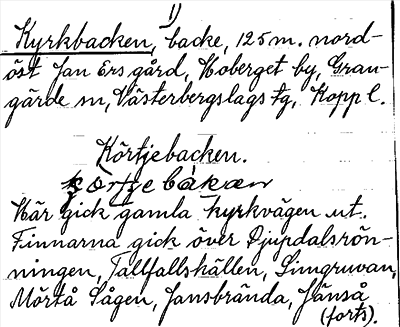 1)
Kyrkbacken, backe, 125 m. nord-
öst Jan Ers gård, Hoberget by, Gran-
gärde sn, Västerbergslags tg, Kopp l.
Körtjebacken.
Här gick gamla kyrkvägen ut.
Finnarna gick över Djupdalsrön-
ningen, Tallfallskällen, Limgruvan,
Mörtå Sågen, Jansbrända, Jänså
(forts).